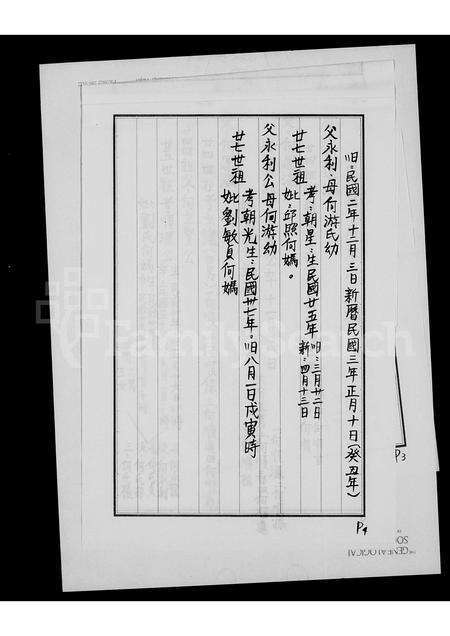 旧：民國二年十二月三日新曆民國三年正月十日(癸丑年)
父永利、母何游氏幼
廿七世祖
考：朝星：生民國廿五年
旧：三月廿二日
新：四月十三日
妣：邱熙何媽。
父永利公母何游幼
廿七世祖
考朝光生：民國卅七年：旧八月一日戊寅時
妣劉敏貞何媽
P3
P4
THE GENEALOGICAL
SO
FamilySearch